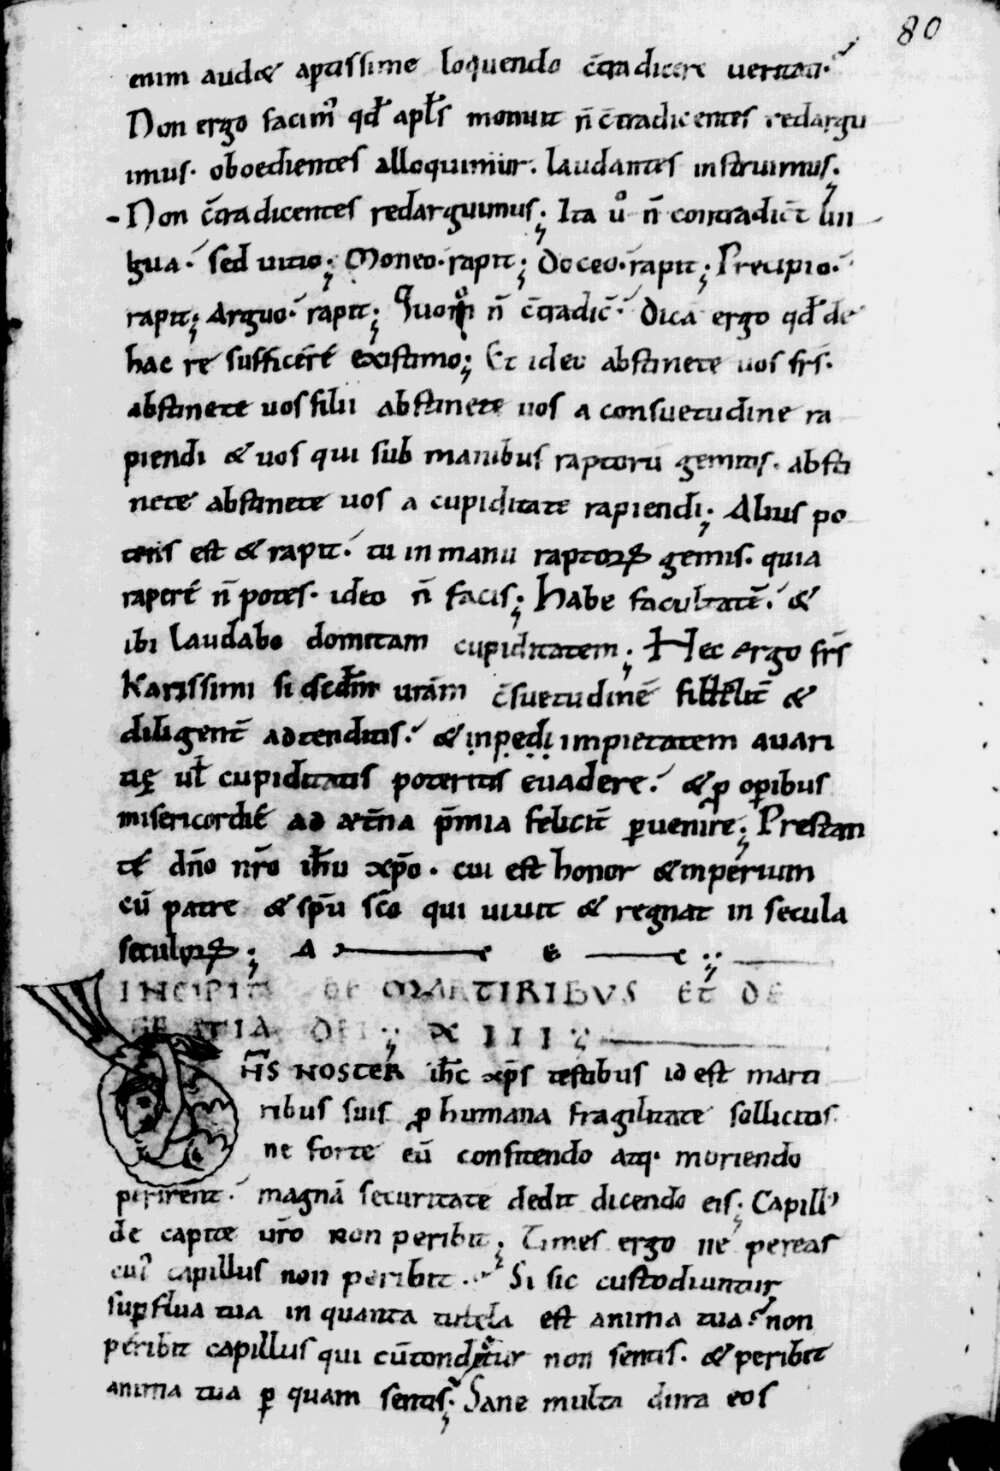 80
enim audet aptissime loquendo c̄tradicere ueritati·
Non ergo facim᾽ qđ apl̄s monuit n̄ c̄tradicentes redargu
imus· oboedientes alloquimur· laudantes instruimus;
Non c̄tradicentes redarguimus; Ita ů n̄ contradic̄t lin
gua· sed uitio; Moneo· rapit; Doceo· rapit; Precipio·
rapit; Arguo· rapit; Quom̊ n̄ c̄tradic̄· Dicā ergo qđ de
hac re sufficere existimo; Et ideo abstinete uos frs̄·
abstinete uos filii abstinete uos a consuetudine ra
piendi & uos qui sub manibus raptorū gemitis· absti
nete abstinete uos a cupiditate rapiendi; Alius po
tens est & rapit· tu in manu raptoꝝ gemis· quia
rapere n̄ potes· ideo n̄ facis; Habe facultatē· &
ibi laudabo domitam cupiditatem; Hec ergo frs̄
Karissimi si scđm urām c̄suetudinē fidelit̄ &
diligent̄ adtenditis· & inpedi impietatem auari
tię ul̄ cupiditatis poteritis euadere· & ꝑ oꝑibus
misericordie ad aet̄na p̄mia felicit̄ ꝑuenire; Prestan
te dn̄o nr̄o ih̄u xp̄o· cui est honor & inperium
cū patre & sp̄u sc̄o qui uiuit & regnat in secula
seculoꝝ; A E
INCIPIT DE MARTIRIBVS ET DE
GRATIA DEI; XIII;
DN̄S NOSTER ih̄c xp̄s testibus id est marti
ribus suis ꝓ humana fragilitate sollicitis
ne forte eū confitendo atq· moriendo
perirent· magnā securitate dedit dicendo eis; Capill᾽
de capite ur̄o non peribit; Times ergo ne pereas
cui᾽ capillus non peribit· Si sic custodiuntur
suꝑflua tua in quanta tutela est anima tua· non
peribit capillus qui cū tonditur non sentis· & peribit
anima tua ꝑ quam sentis; Sane multa dura eos